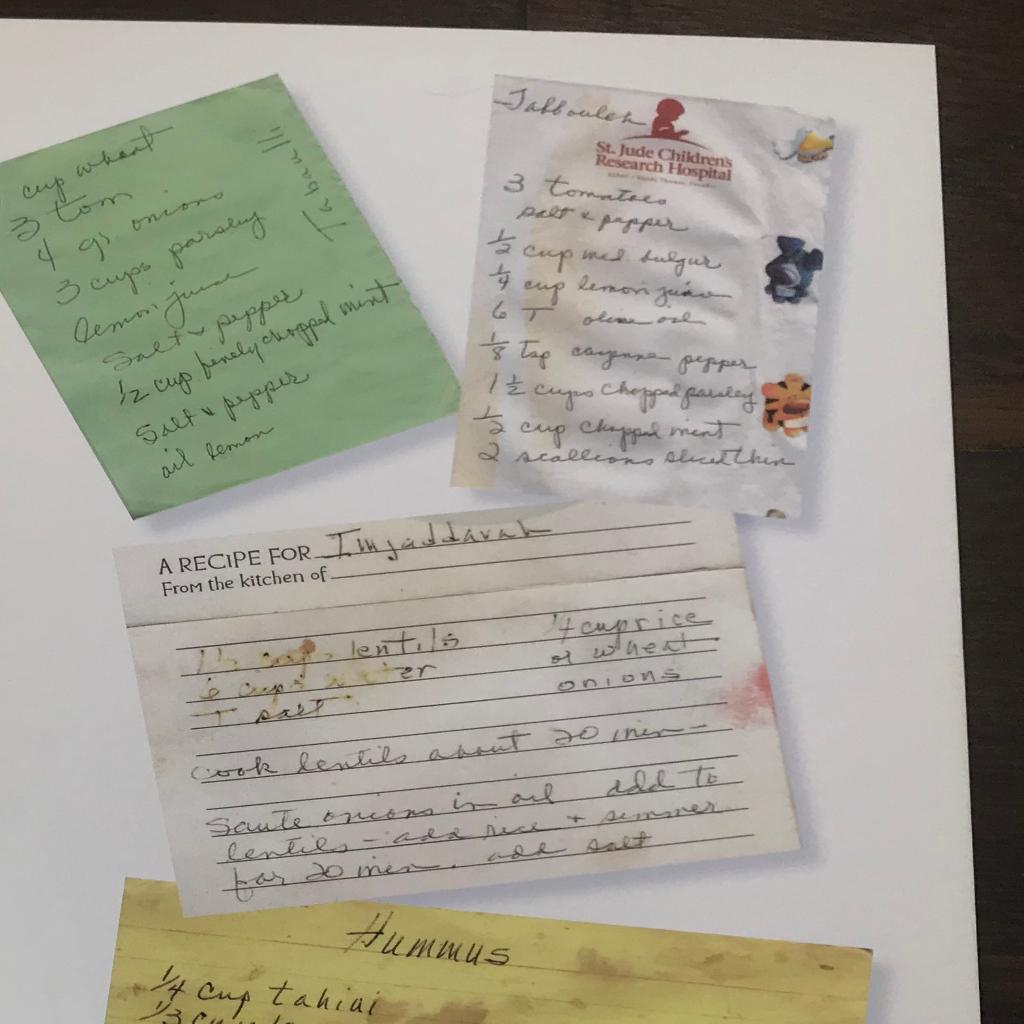 cup wheat
3 tom
4 gr onions
3 cups parsley
lemon juice
Salt & pepper
1/2 cup finely chopped mint
Salt & pepper
oil lemon
Tabouli
Tabbouleh
St. Jude Children's
Research Hospital
3 tomatoes
salt & pepper
1/2 cup med. bulgur
1/4 cup lemon juice
6 T olive oil
1/8 Tsp cayenne pepper
1 1/2 cups chopped parsley
1/2 cup chopped mint
2 scallions sliced thin
A RECIPE FOR Imjaddarah
From the kitchen of
1 1/2 cups lentils
6 cups water
T salt
1/4 cup rice
or wheat
onions
Cook lentils about 20 min -
Saute onions in oil add to
lentils - add rice + simmer
for 20 min. add salt
Hummus
1/4 cup tahini
1/3 cup